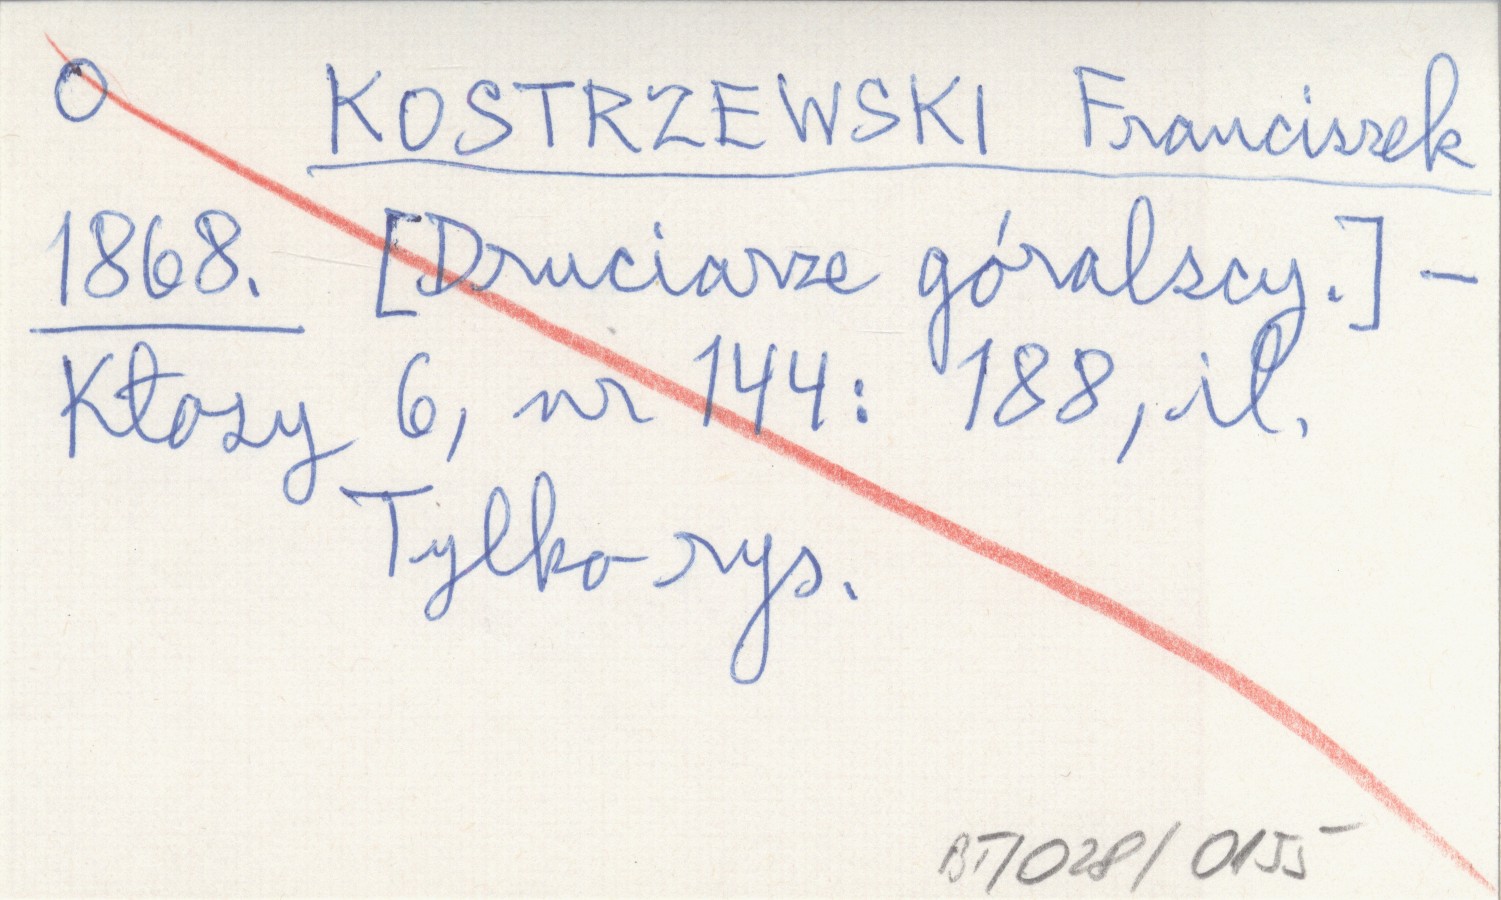 O KOSTRZEWSKI Franciszek
1868. [Druciarze góralscy.] –
Kłosy 6, nr 144: 188, il.
Tylko rys.
BT/028/0155